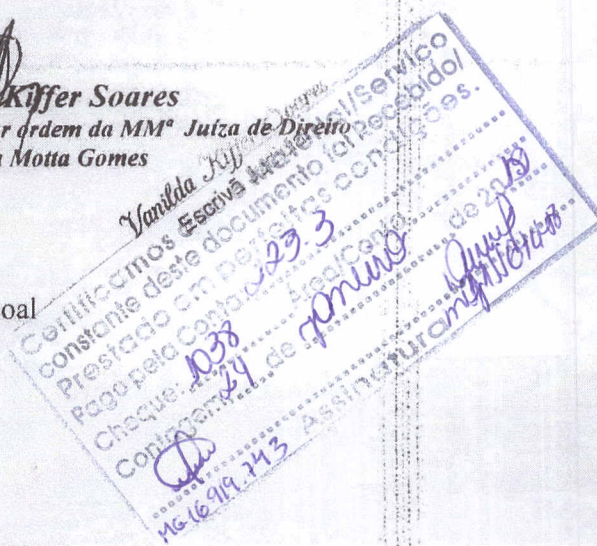 Kiffer Soares
r ordem da MMª Juíza de Direito
Motta Gomes
Vanilda Kiffer Soares
Escrivã
oal
Certificamos que o Material/Serviço
constante deste documento foi Recebido/
Prestado em perfeitas condições.
Pago pela Conta: 223.3
Cheque: 1038 Area/Cento
Contagem, 24 de janeiro de 20
Assinatura
MG 16 919.743